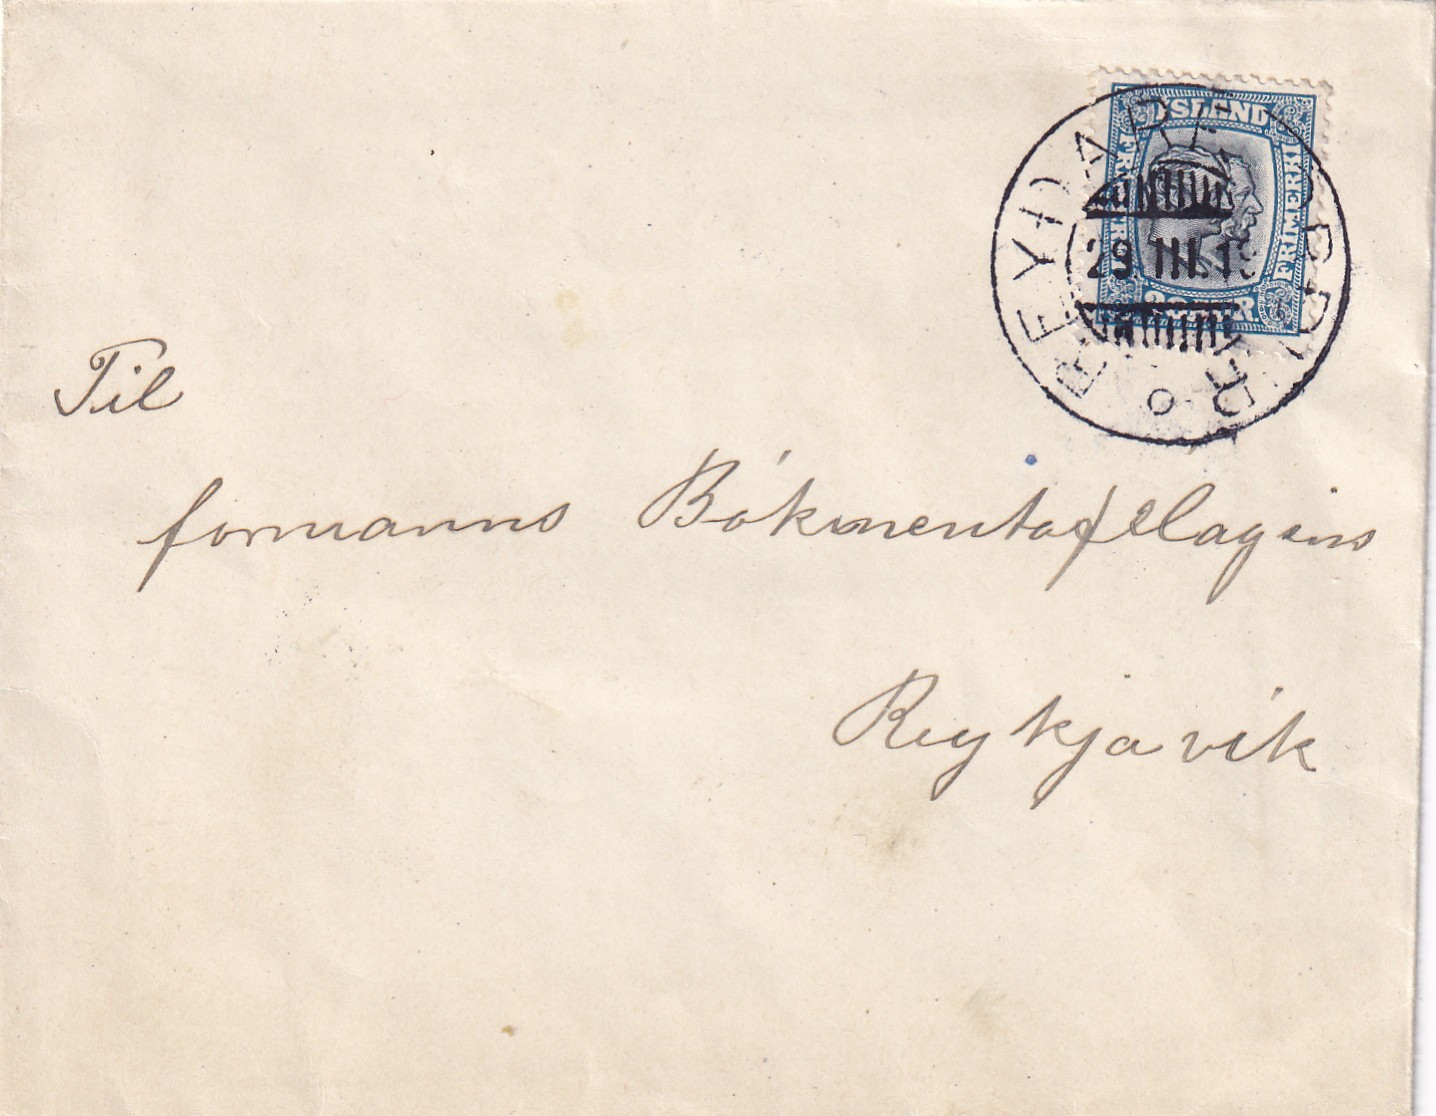 ÍSLAND
FRIMERKI
FRIMERKI
REYÐARFJÖRÐUR
29.III.19
Til
formanns Bókmentafélagsins
Reykjavík